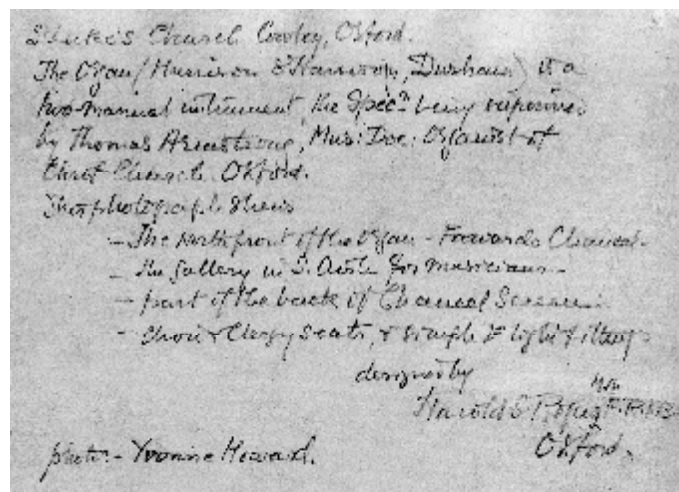 S. Luke's Church Cowley, Oxford.
The Organ (Harrison & Harrison, Durham) is a
two-manual instrument, the Specn. being supervised
by Thomas Armstrong, Mus: Doc: Organist of
Christ Church Oxford.
This photograph shews
- The north front of the Organ - Towards Chancel.
- the Gallery in S. Aisle for musicians -
- part of the back of Chancel Screen.
- Choir & Clergy Seats, & simple light fittings
designed by
Harold S. Rogers F.R.I.B.A.
Oxford.
photo: - Yvonne Howard.